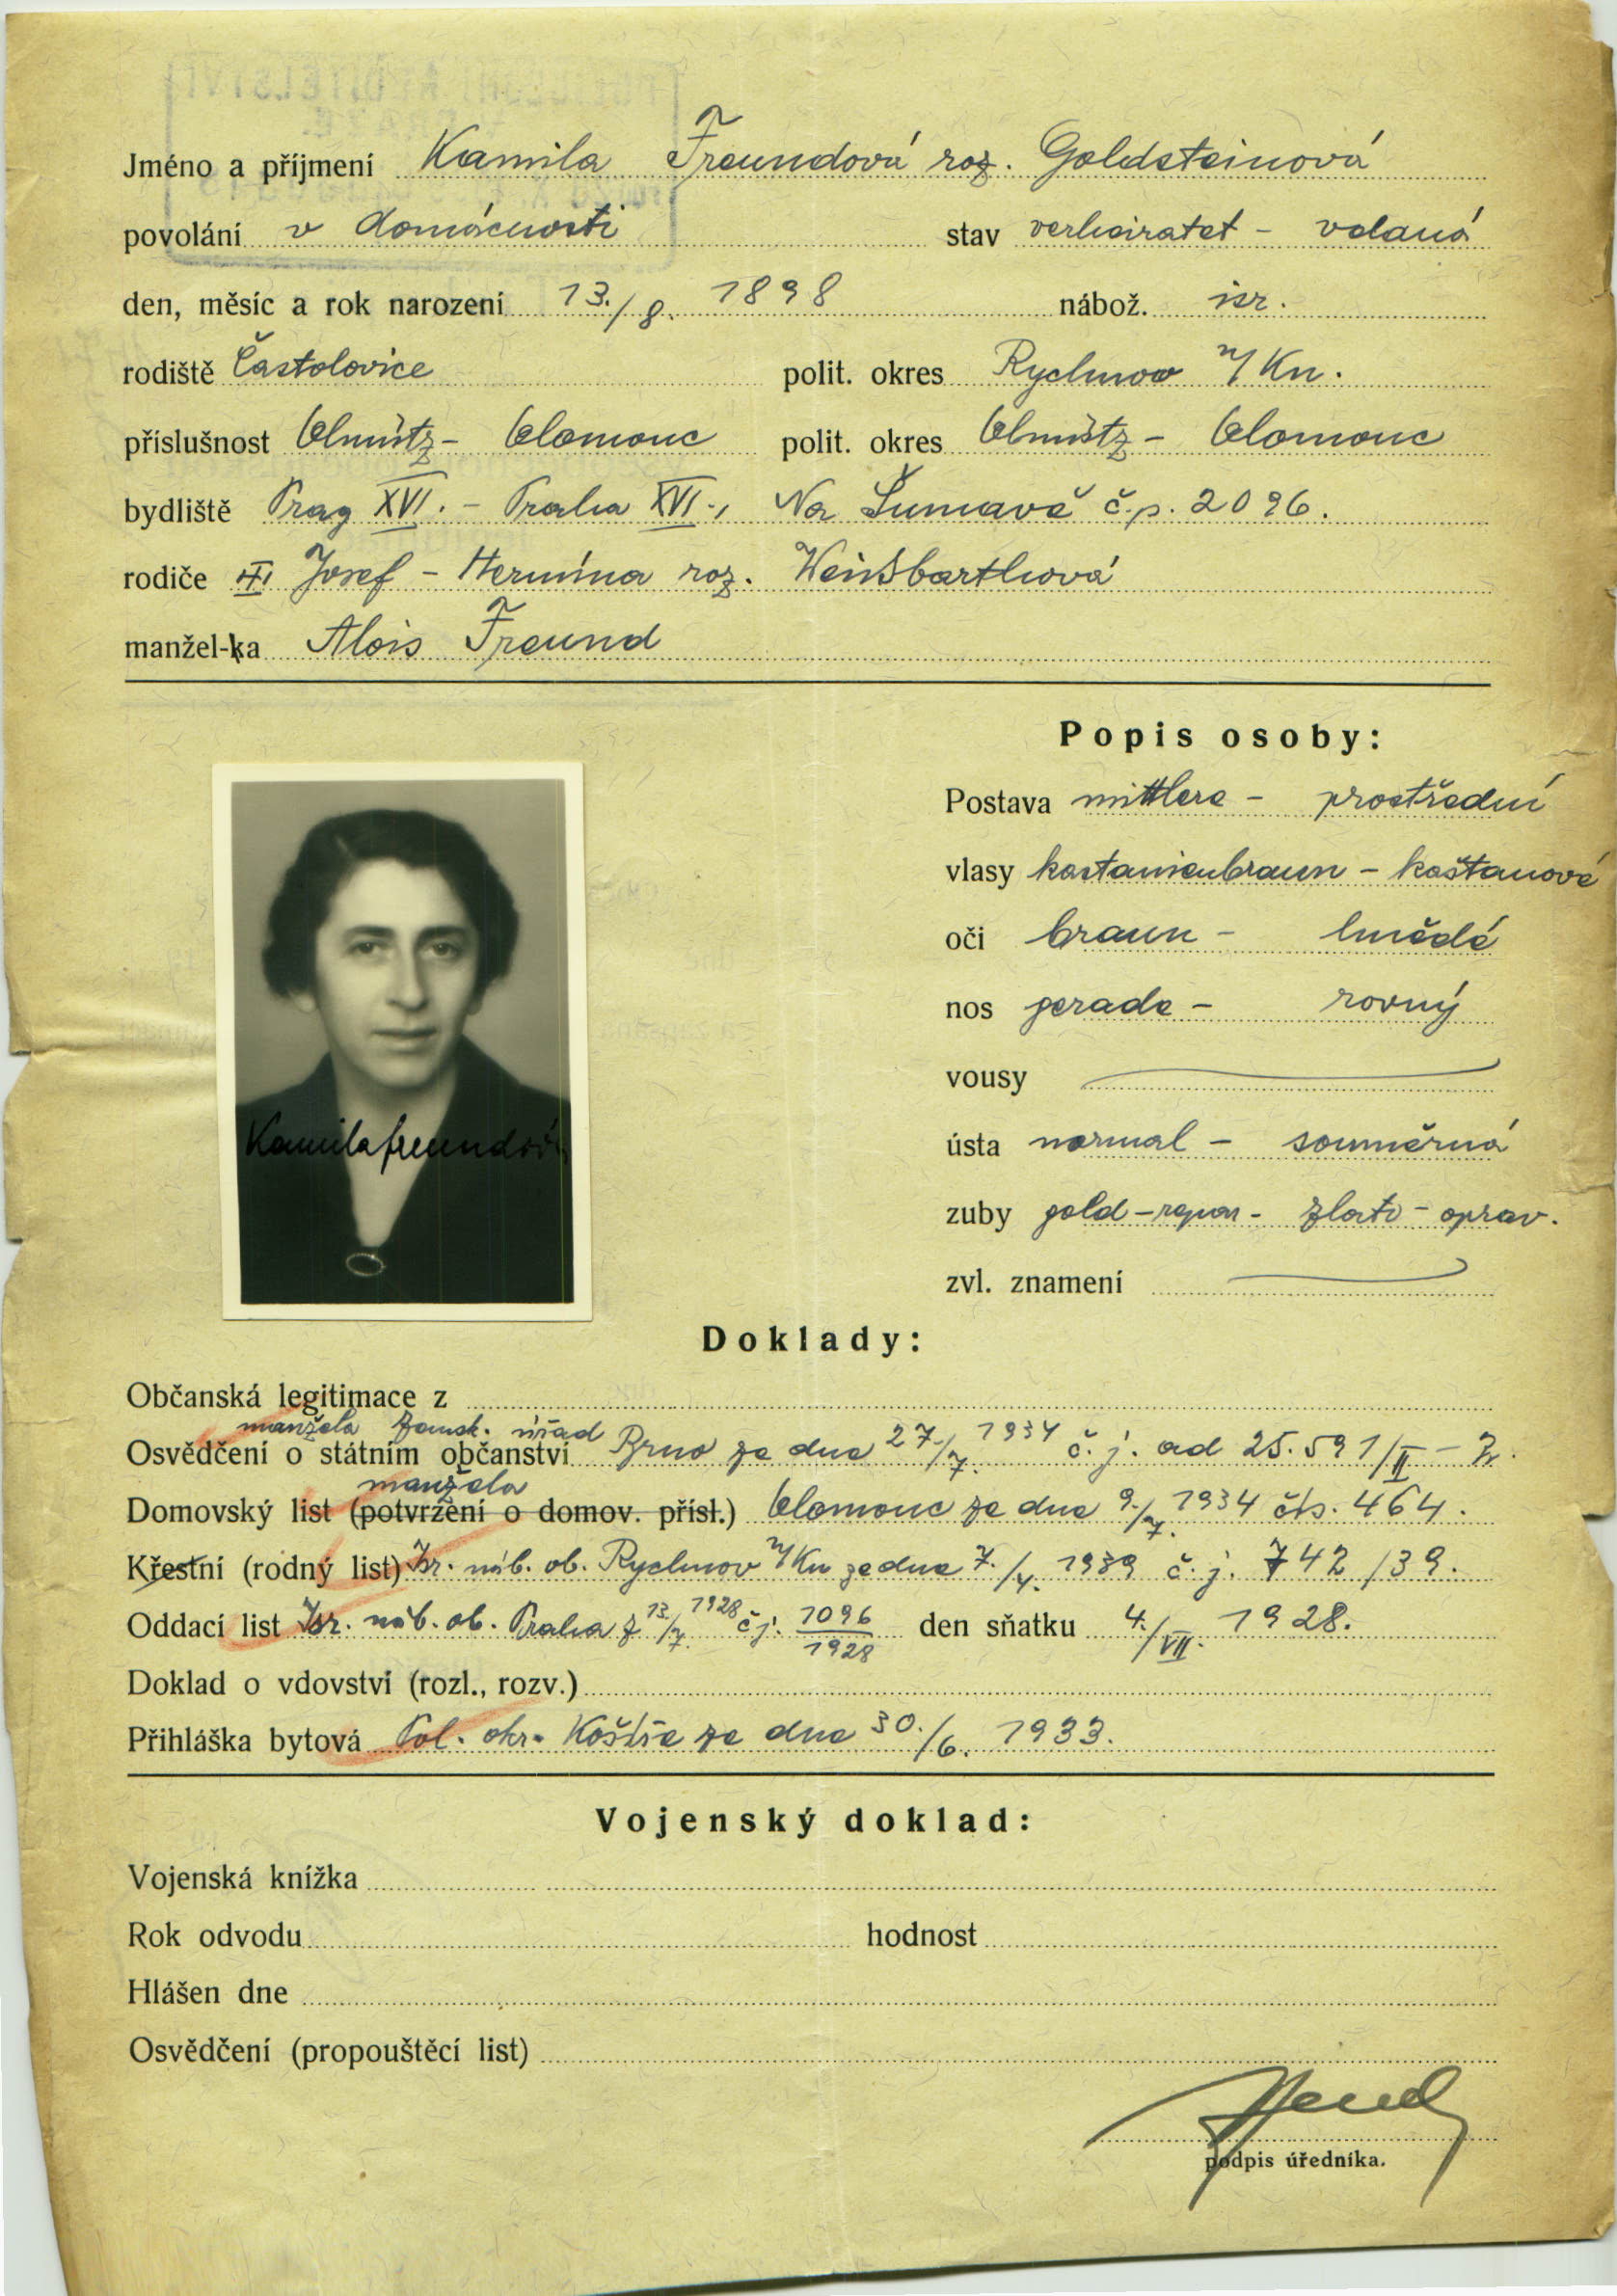 Jméno a příjmení Kamila Freundová roz. Goldsteinová
povolání v domácnosti stav verheiratet - vdaná
den, měsíc a rok narození 13./8. 1898 nábož. isr.
rodiště Častolovice polit. okres Rychnov n/Kn.
příslušnost Olmütz - Olomouc polit. okres Olmütz - Olomouc
bydliště Prag XVI. - Praha XVI., Na Šumavě č.p. 2096.
rodiče Josef - Hermína roz. Weissbarthová
manžel-ka Alois Freund
Popis osoby:
Postava mittlere - prostřední
vlasy kastanienbraun - kaštanové
oči braun - hnědé
nos gerade - rovný
vousy
ústa normal - souměrná
zuby gold-repar- zlato-oprav.
zvl. znamení
Kamila Freundová
Doklady:
Občanská legitimace z
manžela Zemsk. úřad
Osvědčení o státním občanství Brno ze dne 27/7. 1934 č. j. ad 25.591/II -
manžela
Domovský list (potvrzení o domov. přísl.) Olomouc ze dne 9./7. 1934 čís. 464.
Křestní (rodný list) Isr. náb. ob. Rychnov n/Kn ze dne 7./4. 1939 č. j. 742/39.
Oddací list Isr. náb. ob. Praha z 13./7. 1928 č j. 1096/1928 den sňatku 4./VII. 1928.
Doklad o vdovství (rozl., rozv.)
Přihláška bytová Pol. okr. Košíře ze dne 30./6. 1933.
Vojenský doklad:
Vojenská knížka
Rok odvodu hodnost
Hlášen dne
Osvědčení (propouštěcí list)
podpis úředníka.